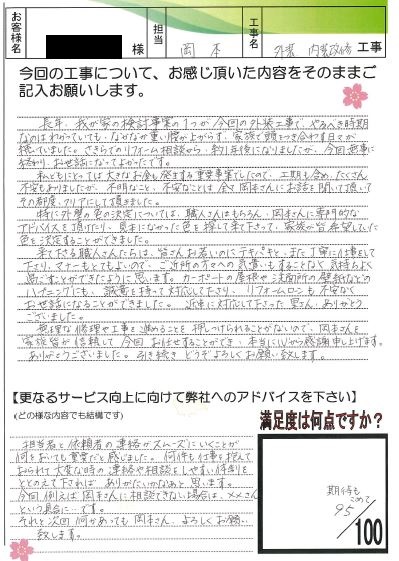 お客様名
様
担当
岡本
工事名
外装 内装改修 工事
今回の工事について、お感じ頂いた内容をそのままご
記入お願いします。
長年、我が家の検討事案の1つが今回の外装工事で、やるべき時期
なのはわかっていても、なかなか重い腰が上がらず、家族で頭をつき合わす日々が
続いていました。さきらでのリフォーム相談から、約1年後になりましたが、今回無事に
終わり、お世話になってよかったです。
私どもにとっては大きなお金も発生する重要事でしたので、工期も含め、たくさん
不安もありましたが、不明なこと、不安なことは全て岡本さんにお話を聞いて頂いて
その都度、クリアにして頂きました。
特に外壁の色の決定については、職人さんはもちろん、岡本さんに専門的な
アドバイスを頂いたり、見本になかった色を探して来て下さって、家族の皆希望していた
色を決定することができました。
来て下さる職人さんたちは、皆さんお若いのにテキパキと、また丁寧に仕事をして
下さり、マナーもとてもよいので、ご近所の方々への気遣いもすることなく、気持ちよく
過ごすことができたように思います。カーポートの屋根や洗面所の壁紙などの
ハプニングにも、誠意を持って対応して下さり、リフォームローンも不安なく
お世話になることができました。近年に対応して下さった皆さん、ありがとう
ございました。
無理な修理や工事を進めることを押しつけられることがないので、岡本さんを
家族皆が信頼して今回お任せすることができ、本当に心から感謝申し上げます。
ありがとうございました。引き続きどうぞよろしくお願い致します。
【更なるサービス向上に向けて弊社へのアドバイスを下さい】
(どの様な内容でも結構です)
満足度は何点ですか?
担当者と依頼者の連絡がスムーズにいくことが
何をおいても重要だと感じました。何件も仕事を抱えて
おられて大変な時の連絡や相談をしやすい体制を
ととのえて下されば ありがたいかなぁと思います。
今回 例えば 岡本さんに相談できない場合は、××さん
という具合に…です。
それと次回 何かあっても 岡本さん、よろしくお願い
致します。
期待も
こめて
95
/100